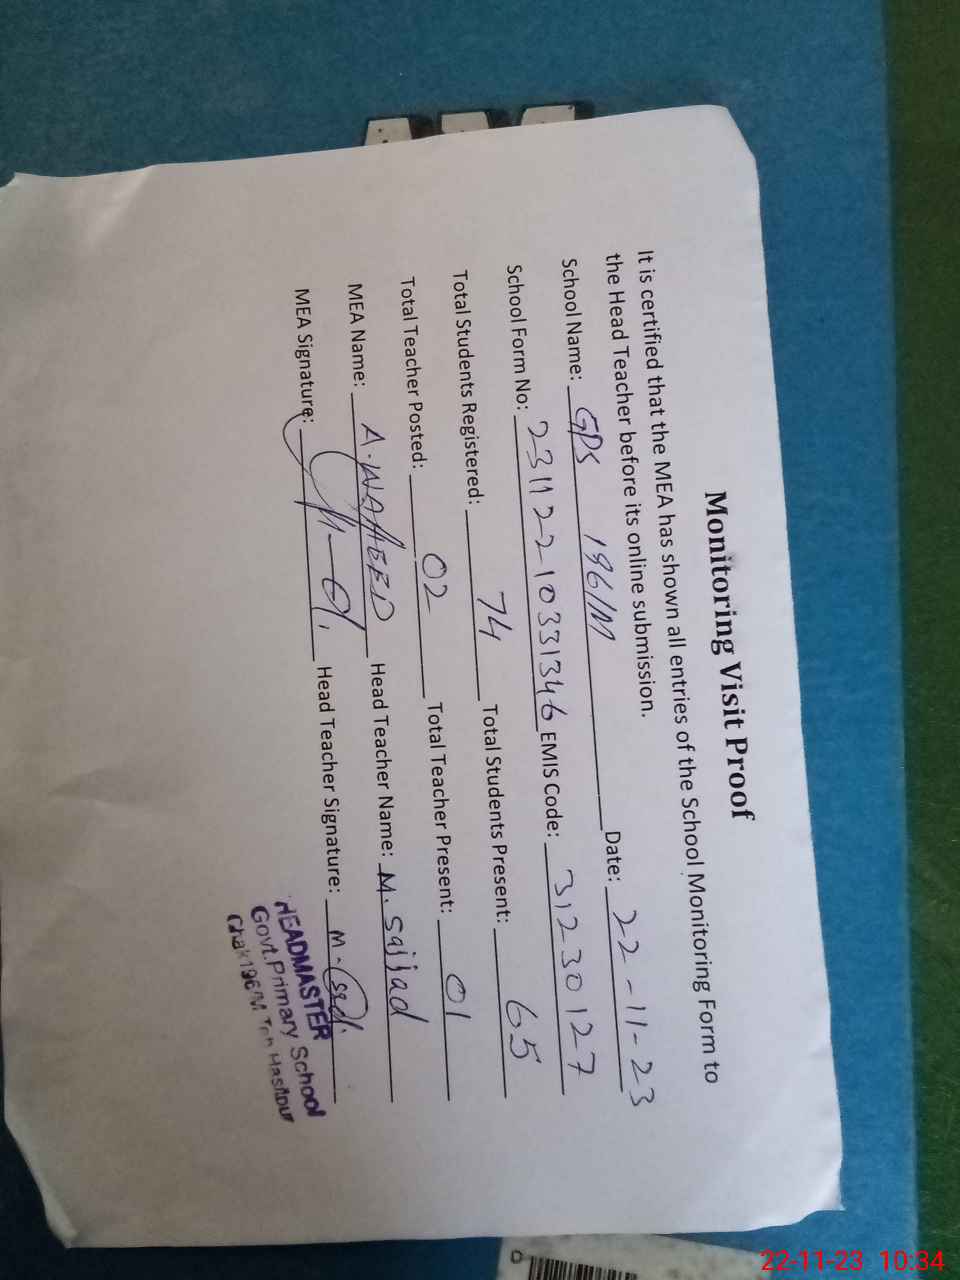 Monitoring Visit Proof
It is certified that the MEA has shown all entries of the School Monitoring Form to
the Head Teacher before its online submission.
School Name: GPS 196/M Date: 22-11-23
School Form No: 231122103331346 EMIS Code: 31230127
Total Students Registered: 74 Total Students Present: 65
Total Teacher Posted: 02 Total Teacher Present: 01
MEA Name: A.WAHEED Head Teacher Name: M. Sajjad
MEA Signature: Head Teacher Signature: M.
HEADMASTER
Govt.Primary School
Chak196/M Teh Hasilpur
22-11-23 10:34